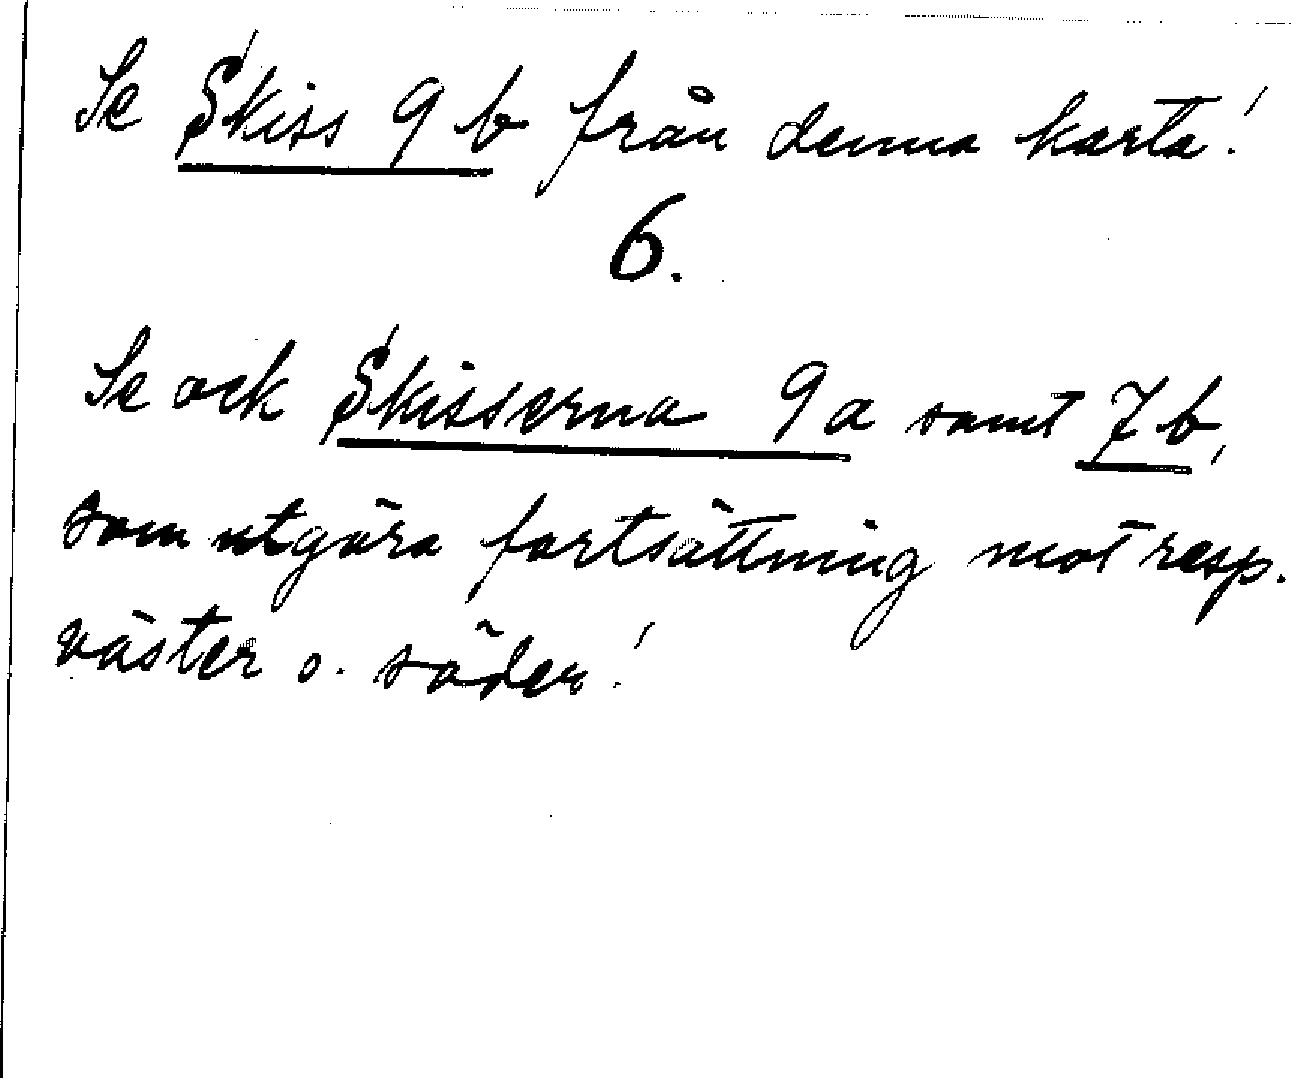 Se Skiss 9 b från denna karta!
6.
Se ock Skisserna 9 a samt 7 b,
som utgöra fortsättning mot resp.
väster o. söder!